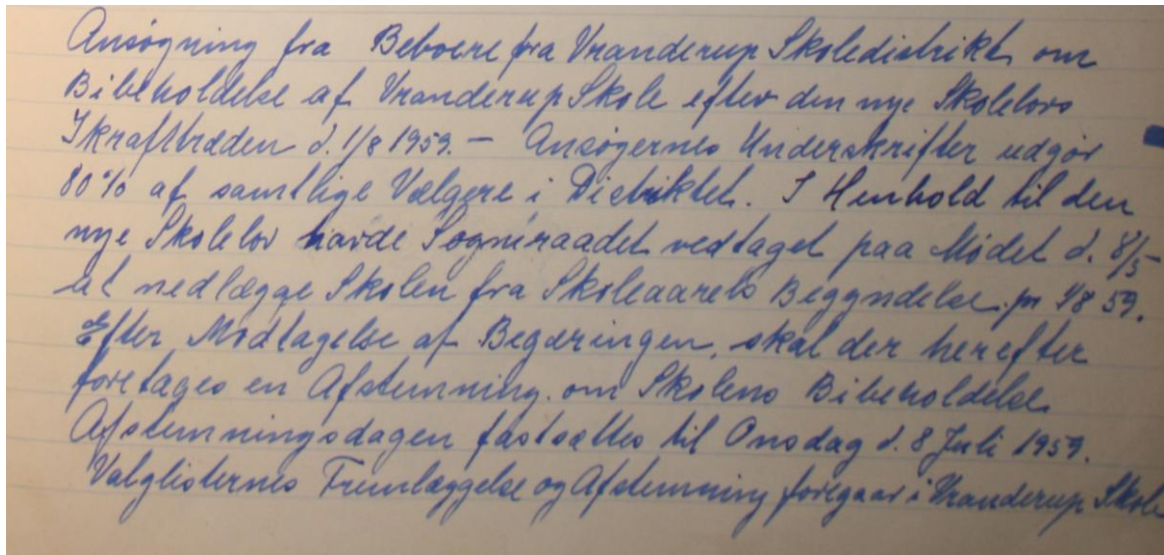 Ansøgning fra Beboere fra Vranderup Skoledistrikt om
Bibeholdelse af Vranderup Skole efter den nye Skolelovs
Ikrafttræden d. 1/8 1959. — Ansøgernes Underskrifter udgør
80% af samtlige Vælgere i Distriktet. I Henhold til den
nye Skolelov havde Sogneraadet vedtaget paa Mødet d. 8/5
at nedlægge Skolen fra Skoleaarets Beggyndelse pr 1/8 59.
Efter Modtagelse af Begæringen, skal der herefter
foretages en Afstemning om Skolens Bibeholdelse
Afstemningsdagen fastsættes til Onsdag d. 8 Juli 1959.
Valglisternes Fremlæggelse og Afstemning foregaar i Vranderup Skole